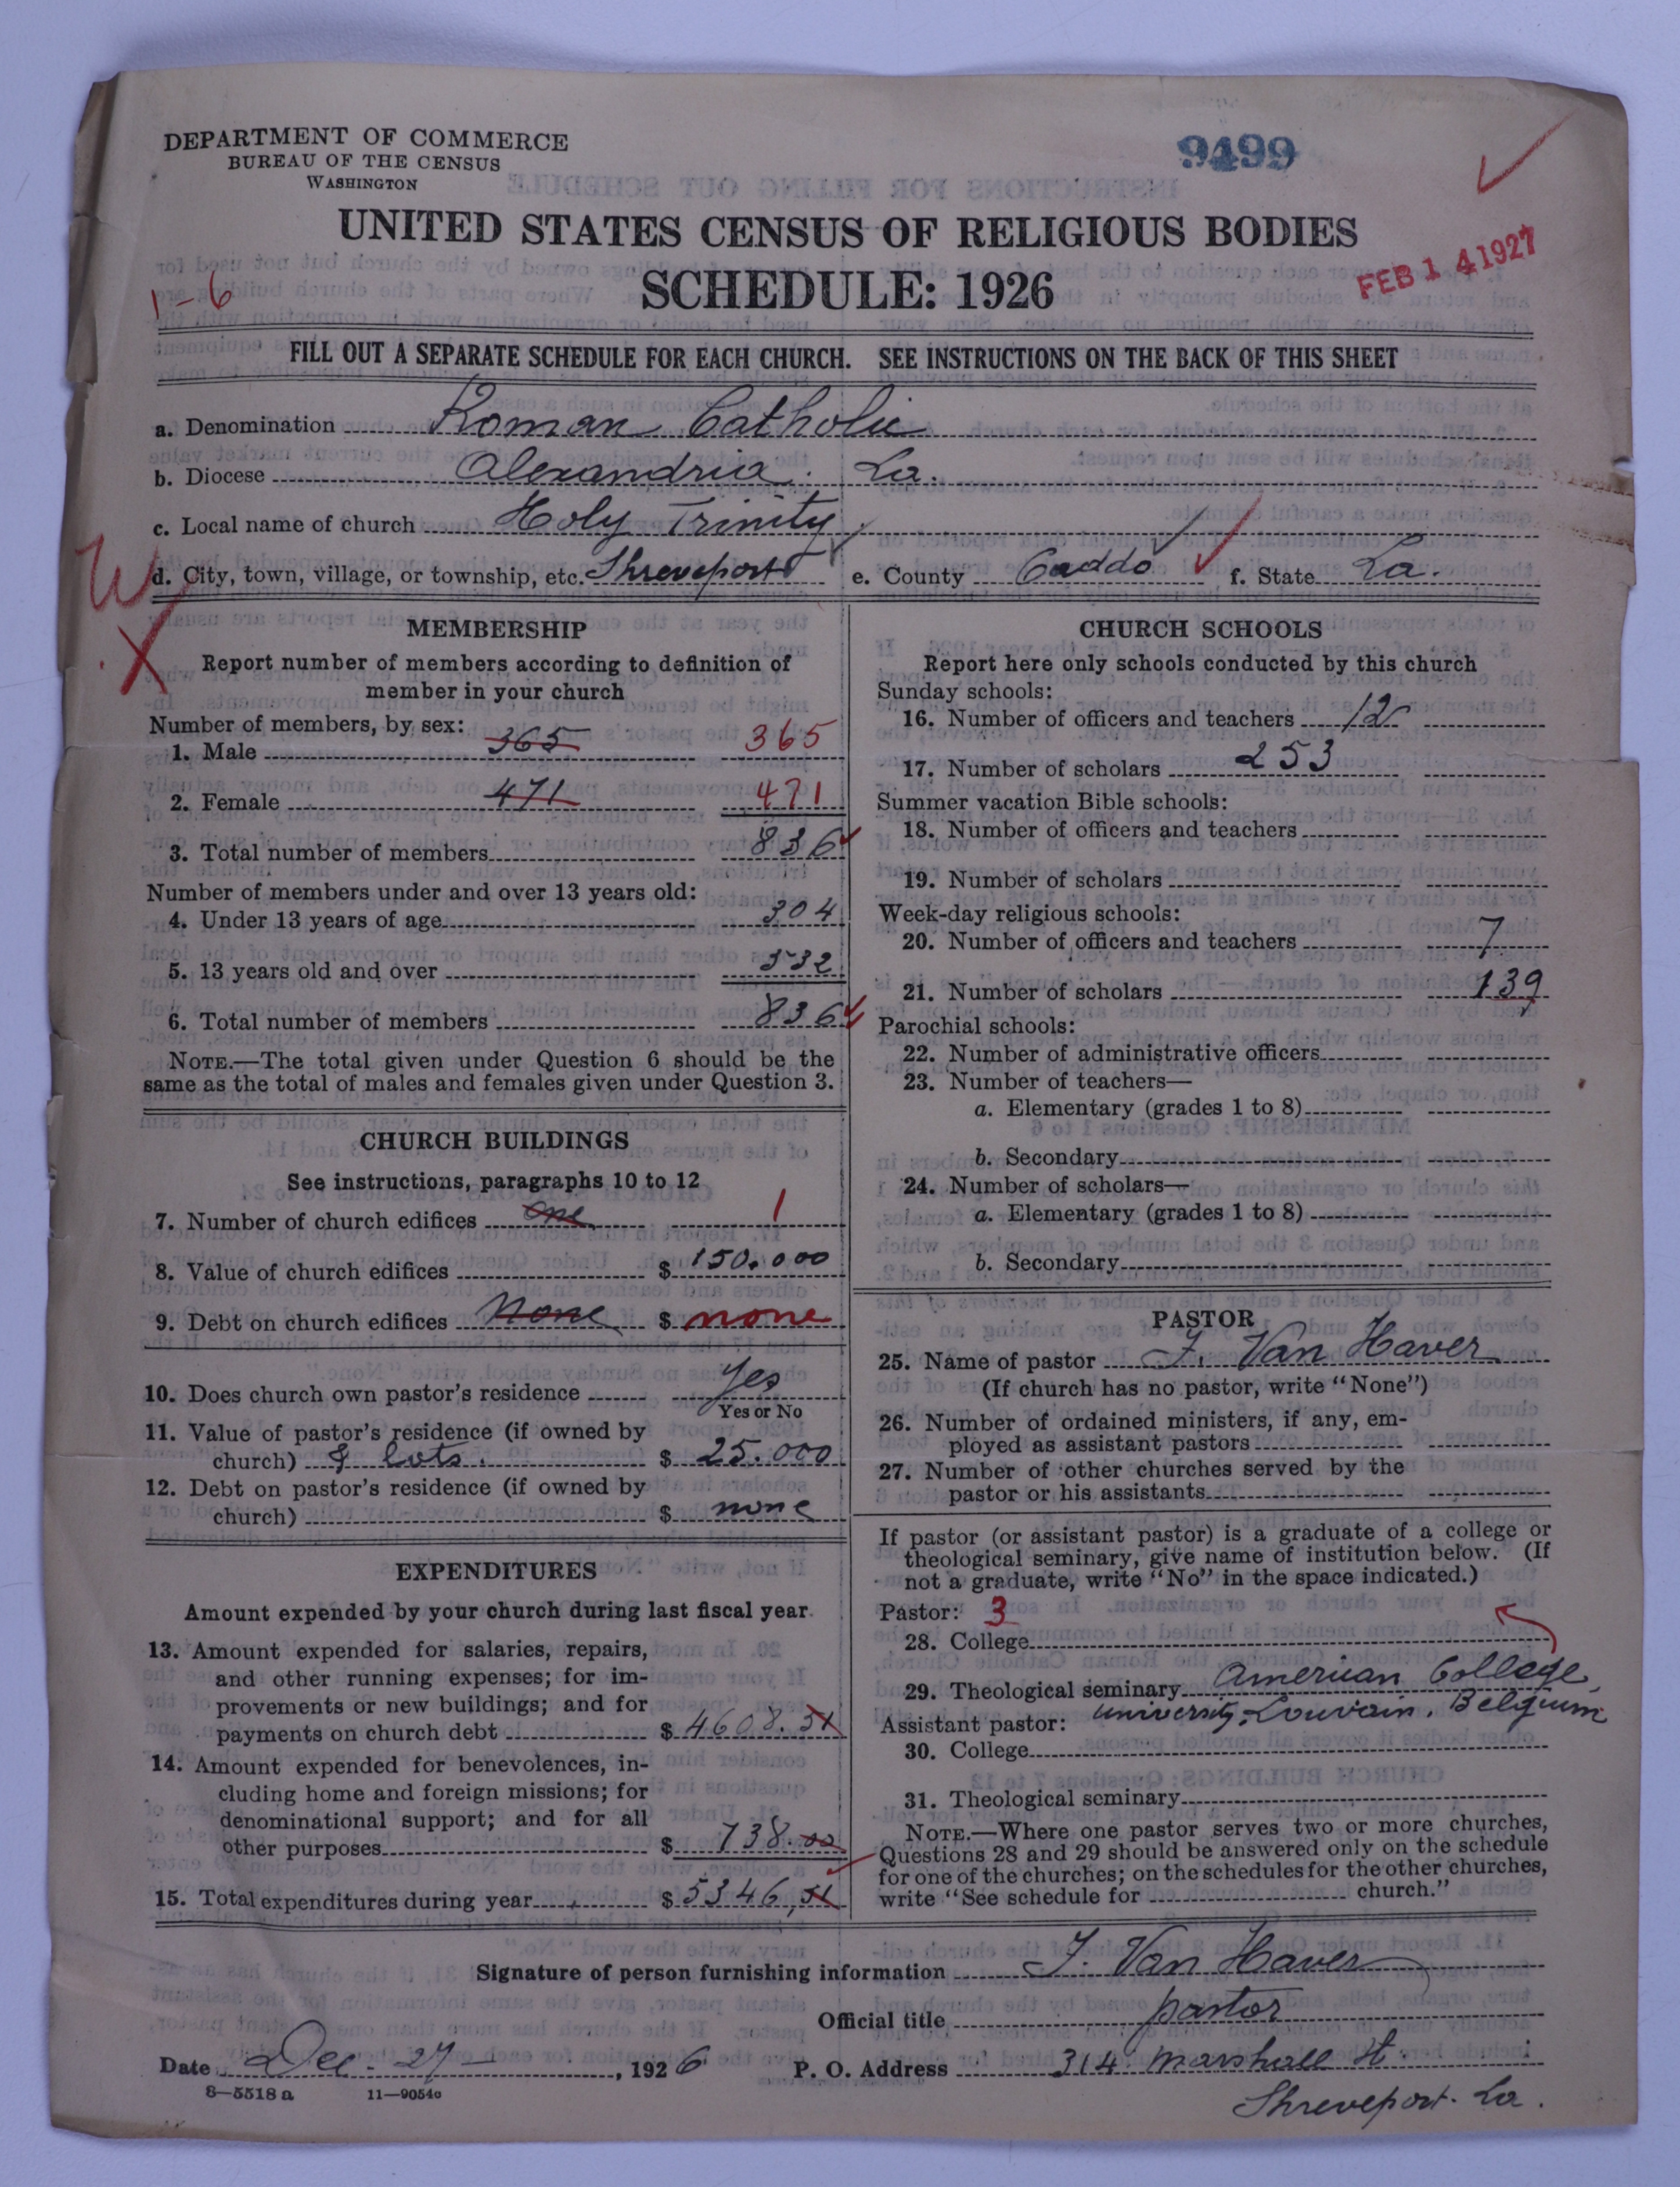 DEPARTMENT OF COMMERCE
BUREAU OF THE CENSUS
WASHINGTON
9499
UNITED STATES CENSUS OF RELIGIOUS BODIES
SCHEDULE: 1926
FEB 14 1927
1-6
FILL OUT A SEPARATE SCHEDULE FOR EACH CHURCH. SEE INSTRUCTIONS ON THE BACK OF THIS SHEET
a. Denomination Roman Catholic
b. Diocese Alexandria. La.
c. Local name of church Holy Trinity
d. City, town, village, or township, etc. Shreveport e. County Caddo f. State La.
MEMBERSHIP
Report number of members according to definition of
member in your church
Number of members, by sex:
1. Male 365 365
2. Female 471 471
3. Total number of members 836
Number of members under and over 13 years old:
4. Under 13 years of age 304
5. 13 years old and over 532
6. Total number of members 836
NOTE.—The total given under Question 6 should be the
same as the total of males and females given under Question 3.
CHURCH BUILDINGS
See instructions, paragraphs 10 to 12
7. Number of church edifices one 1
8. Value of church edifices $ 150.000
9. Debt on church edifices None $ none
10. Does church own pastor's residence Yes
Yes or No
11. Value of pastor's residence (if owned by
church) & lots. $ 25.000
12. Debt on pastor's residence (if owned by
church) $ none
EXPENDITURES
Amount expended by your church during last fiscal year
13. Amount expended for salaries, repairs,
and other running expenses; for im-
provements or new buildings; and for
payments on church debt $ 4608.51
14. Amount expended for benevolences, in-
cluding home and foreign missions; for
denominational support; and for all
other purposes $ 738.00
15. Total expenditures during year $ 5346,51
CHURCH SCHOOLS
Report here only schools conducted by this church
Sunday schools:
16. Number of officers and teachers 12
17. Number of scholars 253
Summer vacation Bible schools:
18. Number of officers and teachers
19. Number of scholars
Week-day religious schools:
20. Number of officers and teachers 7
21. Number of scholars 139
Parochial schools:
22. Number of administrative officers
23. Number of teachers—
a. Elementary (grades 1 to 8)
b. Secondary
24. Number of scholars—
a. Elementary (grades 1 to 8)
b. Secondary
PASTOR
25. Name of pastor J. Van Haver
(If church has no pastor, write "None")
26. Number of ordained ministers, if any, em-
ployed as assistant pastors
27. Number of other churches served by the
pastor or his assistants
If pastor (or assistant pastor) is a graduate of a college or
theological seminary, give name of institution below. (If
not a graduate, write "No" in the space indicated.)
Pastor: 3
28. College
29. Theological seminary American College,
university, Louvain. Belgium
Assistant pastor:
30. College
31. Theological seminary
NOTE.—Where one pastor serves two or more churches,
Questions 28 and 29 should be answered only on the schedule
for one of the churches; on the schedules for the other churches,
write "See schedule for church."
Signature of person furnishing information J. Van Haver
Official title pastor
Date Dec. 27, 1926 P. O. Address 314 Marshall St
Shreveport. La.
8—5518 a 11—9054c